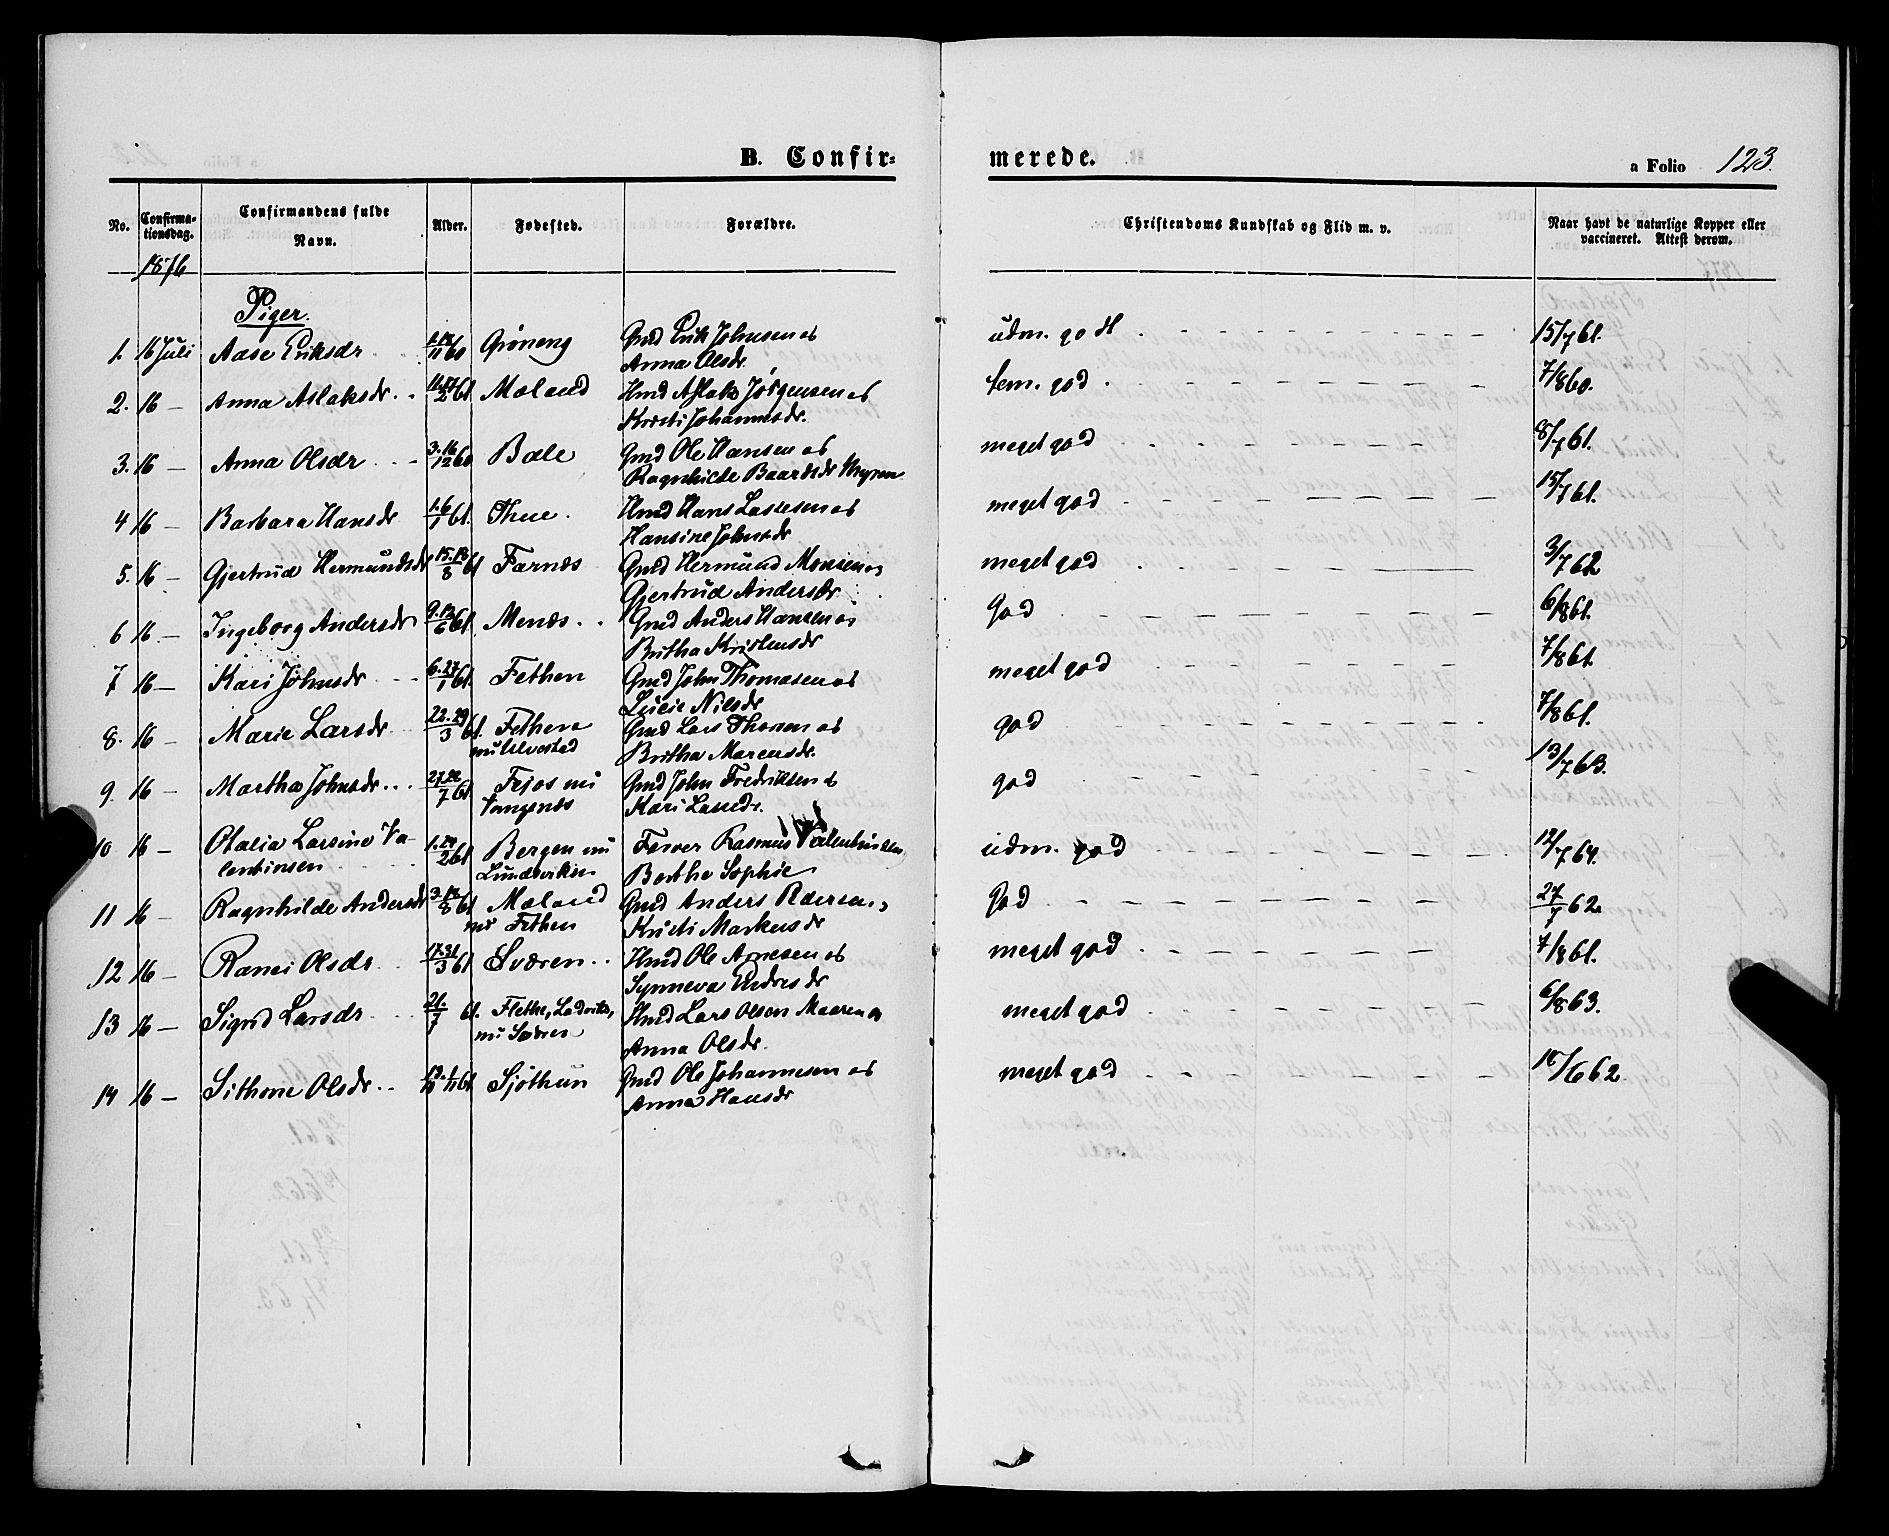 B. Confir=
merede.
a Folio 123.
No.
Confirma-
tionsdag.
Confirmandens fulde
Navn.
Alder.
Fødested.
Forældre.
Christendoms Kundskab og Flid m. v.
Naar havt de naturlige Kopper eller
vaccineret. Attest derom.
1876
Piger.
1. 16 Juli Aase Eriksdr 11 60 Grøneng Gmd Erik Johnsen og udm. godt 15/7 61.
Anna Olsdr.
2. 16 — Anna Aslaksdr. 2 61 Mæland Hmd Aslak Jørgensen og tem. god 7/8 60.
Kristi Johannesdr.
3. 16 — Anna Olsdr 3.16/12 60 Bale Gmd Ole Hansen og meget god 8/7 61.
Ragnhilde Baardsdr
4 16 — Barbara Hansdr 1.6/1 61. Thue. Hmd Hans Lassesen og meget god 15/7 61.
Hansine Johnsdr
5. 16 — Gjertrud Hermundsdr 15.18/8 61 Farnæs Gmd Hermund Monsen og meget god 3/7 62
Gjertrud Andersdr
6 16 — Ingeborg Andersdr 9.12/6 61 Menæs Gmd Anders Hansen og god 6/8 61.
Britha Kristensdr
7 16 — Kari Johnsdr 6.27/1 61. Fethen Gmd John Thomasen og meget god 7/8 61.
Lucie Nilsdr
8. 16 — Marie Larsdr 22.29/3 61. Fethen Gmd Lars Thosen og god 7/8 61.
nu Ulvestad Britha Marcusdr.
9. 16 — Martha Johnsdr 27.28/7 61 Fejos nu Gmd John Fredriksen og god 13/7 63.
Vangsnæs Kari Lassedr.
10 16 — Otalia Larsine Va- 1.20/2 61 Bergen nu Farver Rasmus Valentinsen udm. god 12/7 64.
lentinsen Lundeviken Berthe Sophie
11 16 — Ragnhilde Andersdr 3.18/8 61 Mæland Gmd Anders God 27/7 62
nu Fethen Kristi Markusdr
12 16 — Ranei Olsdr 17.31/3 61 Sværen Hmd Ole Arnesen og meget god 7/8 61.
Synneva Endresdr
13 16 — Sigrid Larsdr 21./7 61. Flethe, Ladvik, Hmd Lars Olsen Maaren og meget god 6/8 63.
nu Sværen Anna Olsdr.
14 16 — Sithone Olsdr 61 Sjøthun Gmd Ole Johannesen og meget god 16/6 62.
Anna Hansdr